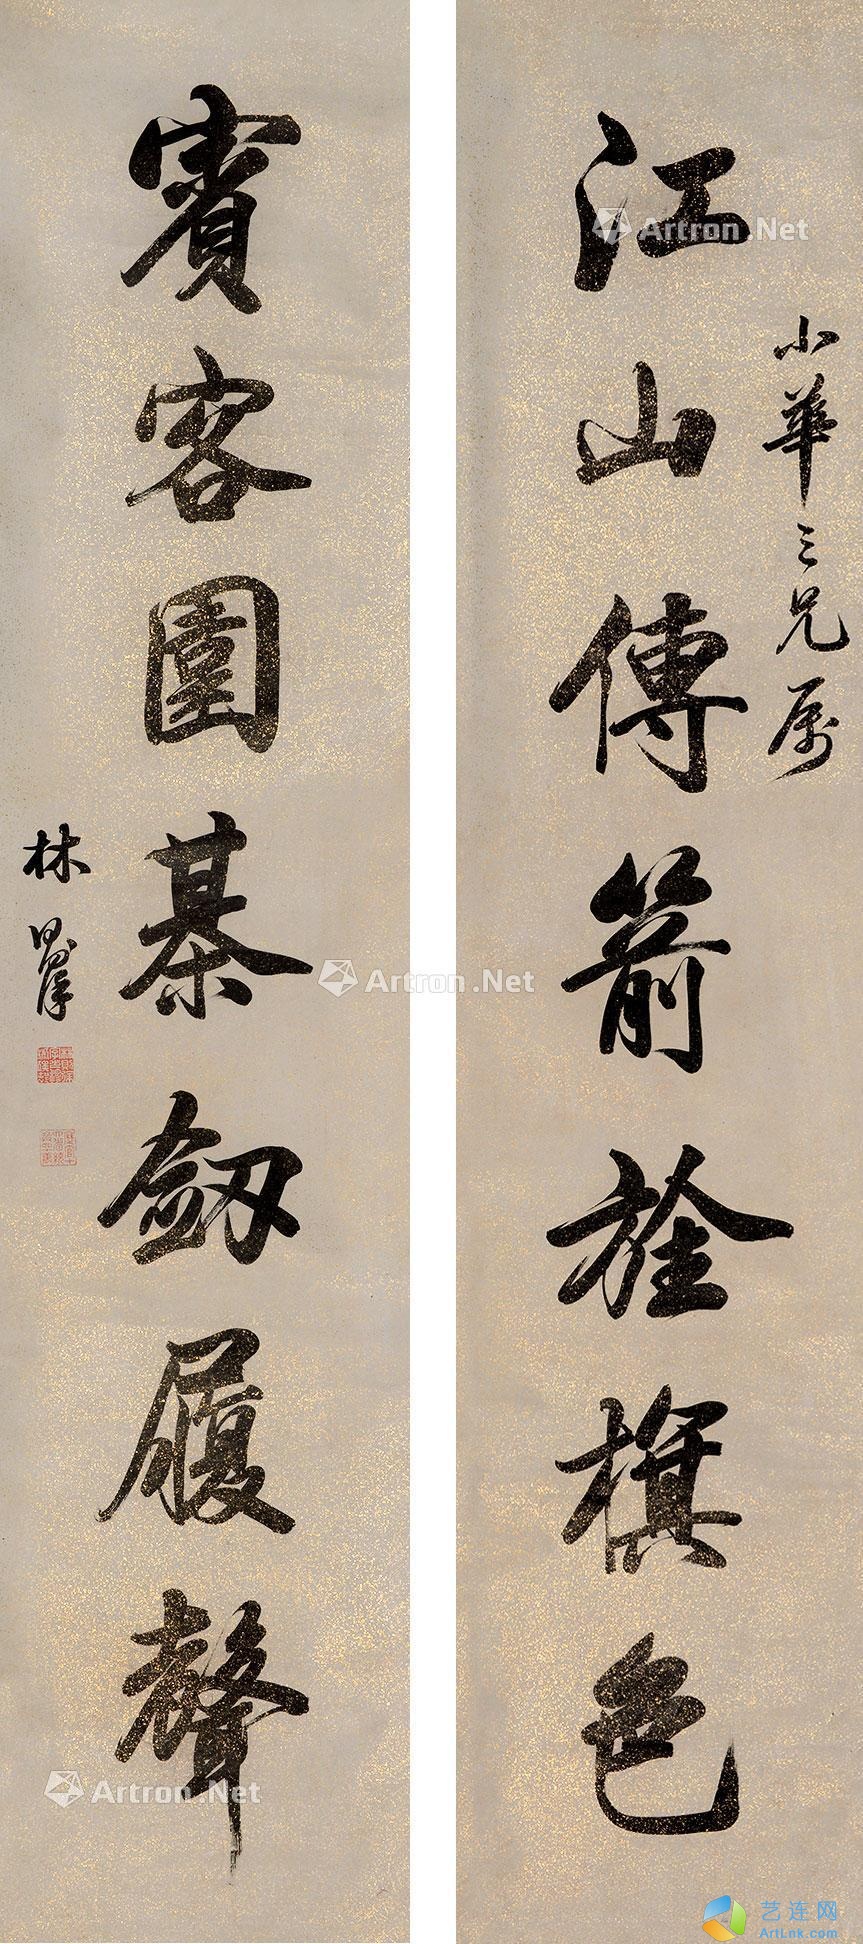 江山傳箭旌旗色
小華三兄属
賓客圍棊劒履聲
林則徐
Artron.Net
Artron.Net
Artron.Net
艺连网
ArtLnk.com